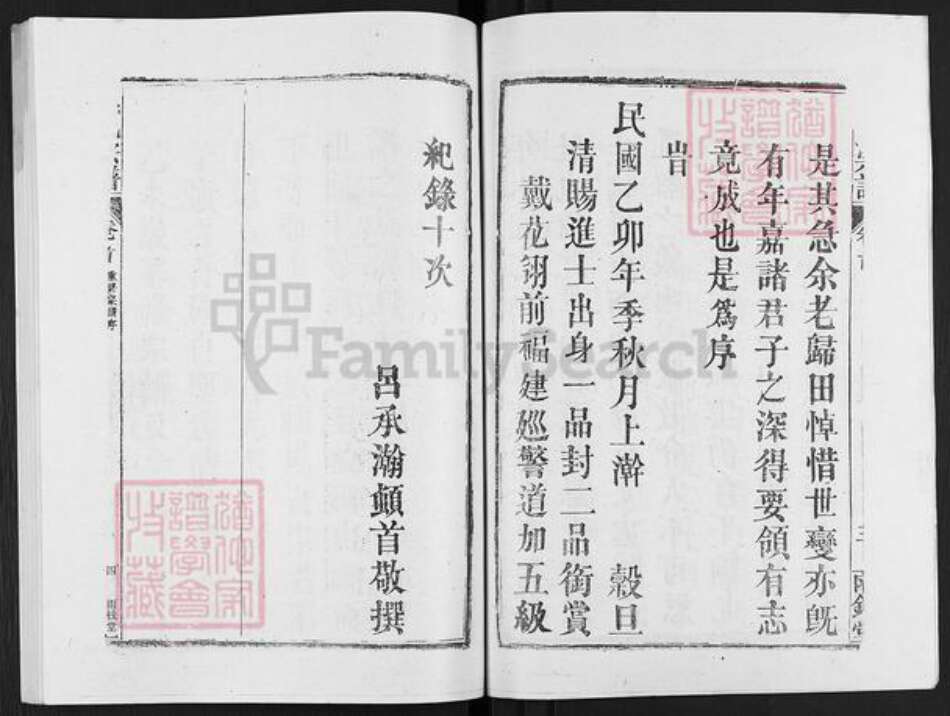 是其急余老歸田悼惜世變亦既
有年嘉諸君子之深得要領有志
竟成也是爲序
旹
民國乙卯年季秋月上澣 穀旦
清賜進士出身一品封二品銜賞
戴花翎前福建廵警道加五級
紀錄十次
呂承瀚頓首敬撰
卷首
四
FamilySearch